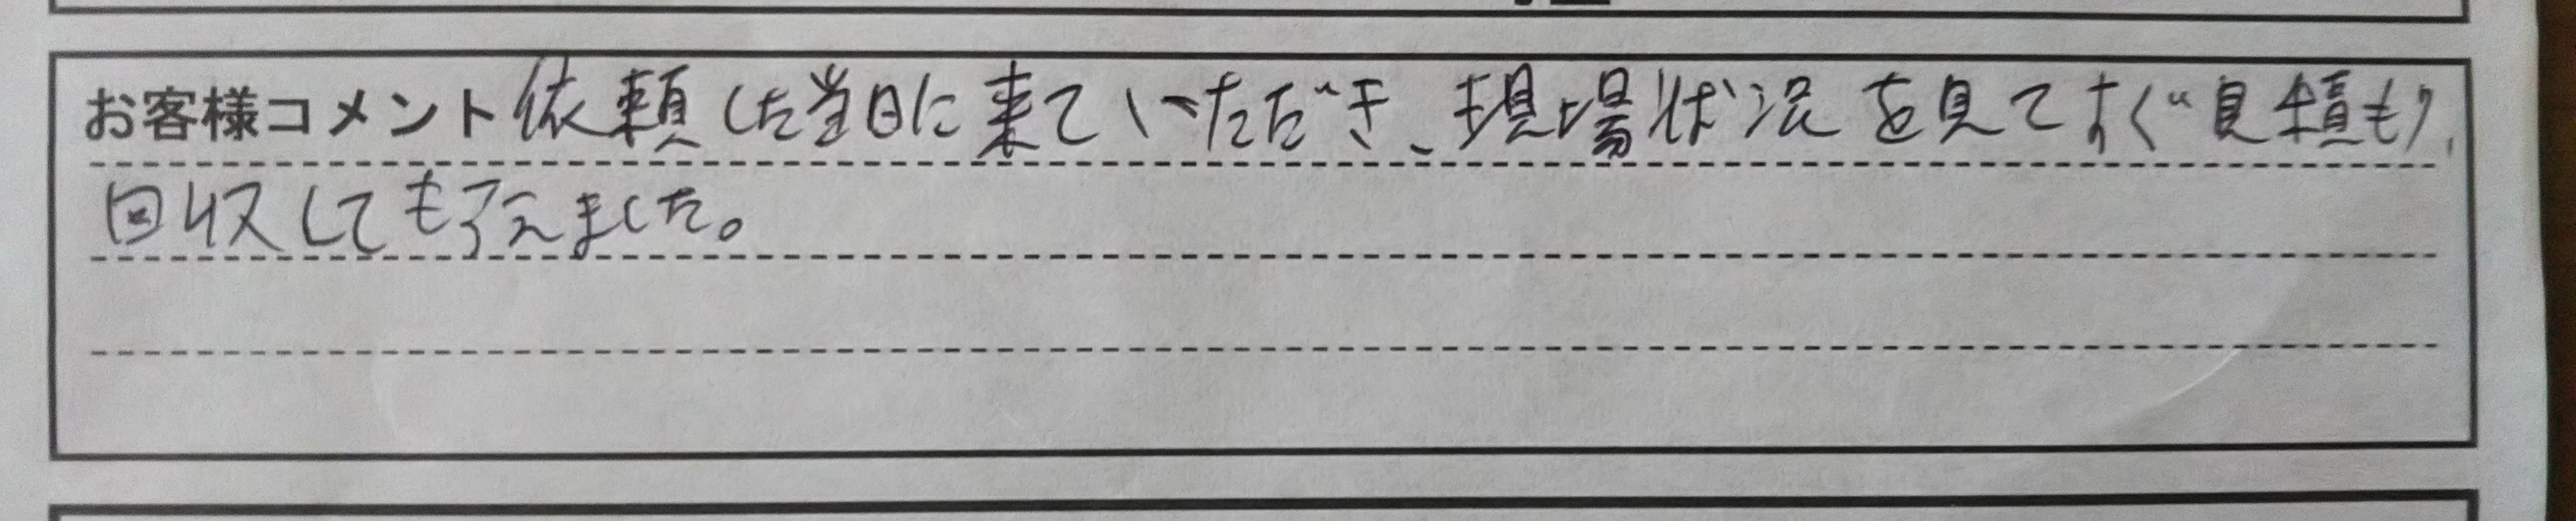 お客様コメント 依頼した当日に来ていただき、現場状況を見てすぐ見積もり、
回収してもらえました。